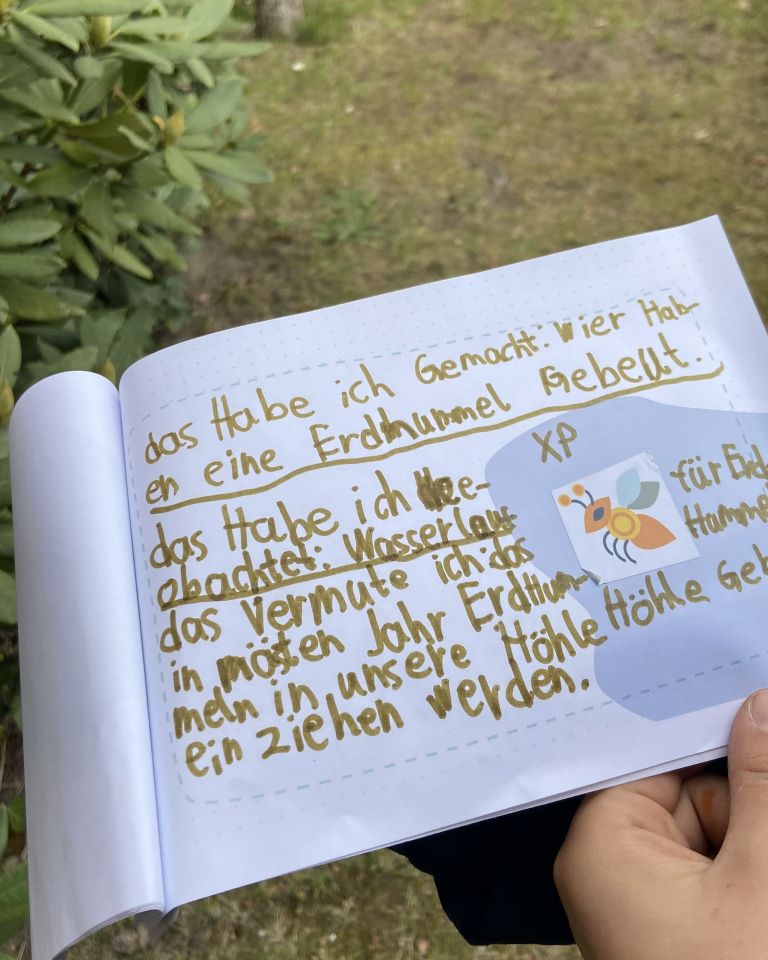 das Habe ich Gemacht: Wier Hab-
en eine Erdhummel Gebeut.
das Habe ich Bee-
obachtet: Wasserlauf
das Vermute ich: das
in mästen Jahr Erdhum-
meln in unsere Höhle
ein ziehen werden.
XP
für Erd
Hummel
Höhle Geb